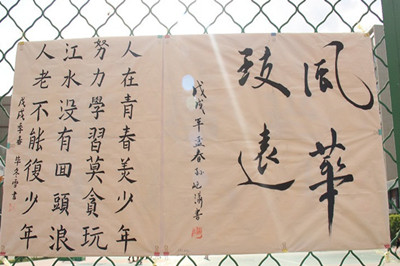 風華
致遠
戊戌年孟春孙
人在青春美少年
努力學習莫貪玩
江水没有回頭浪
人老不能復少年
戊戌季春